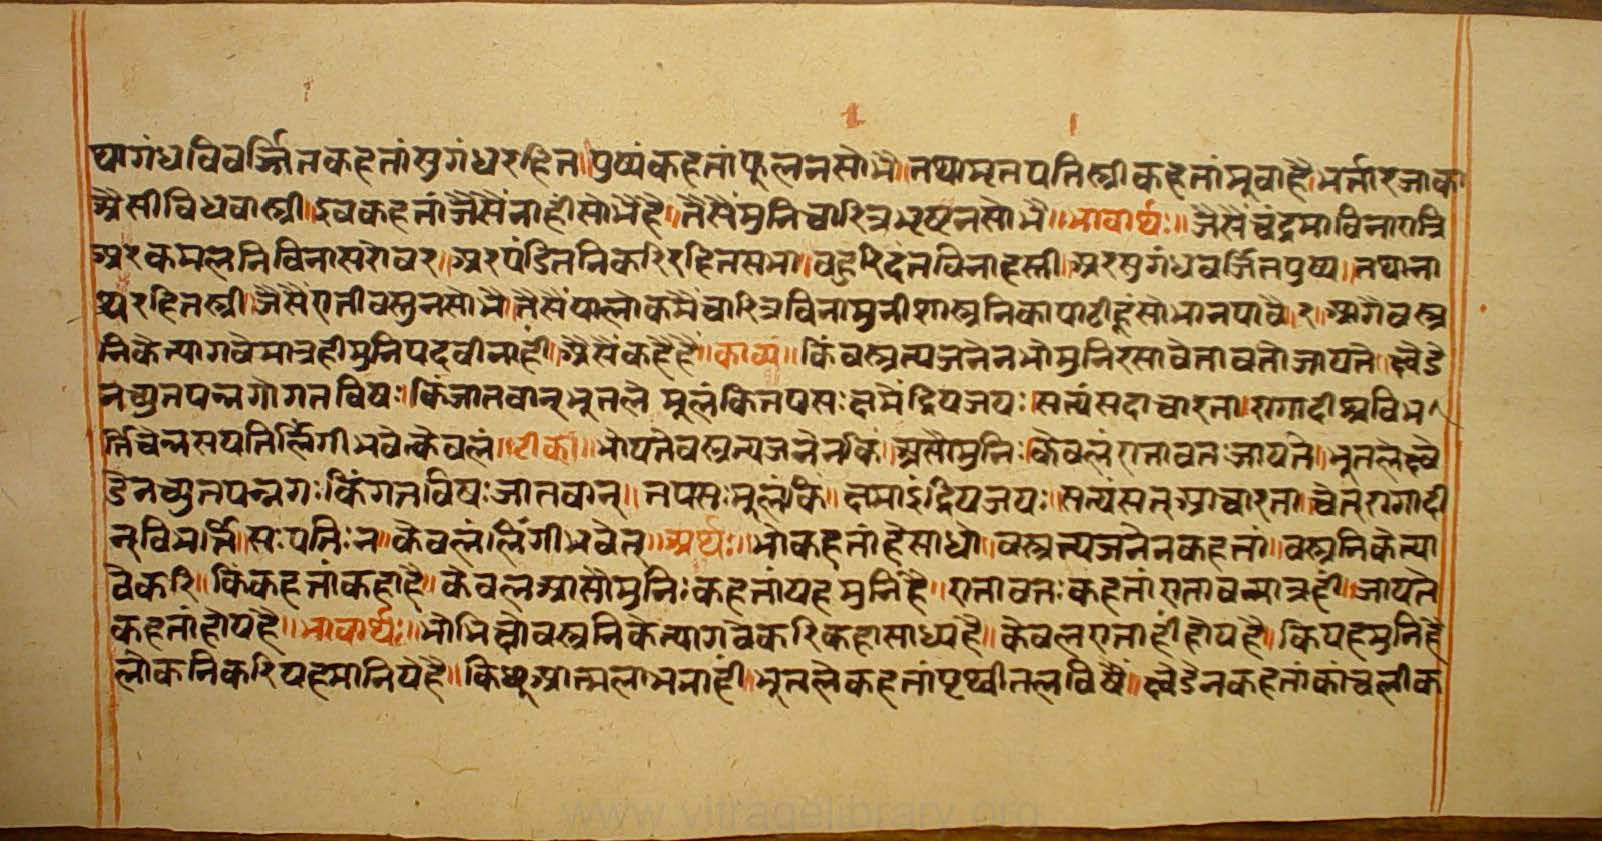 थागंधविवर्ज्जितकहतांसुगंधरहित॥पुष्पंकहतांफुलनसोभै॥तथामृतपतिस्त्रीकहतांमुवाहै।भर्तारजाका
अैसीविधवास्त्री॥इवकहतांजैसैंनाहींसोभैहै॥तैसैंमुनिचारित्रभृष्टनसोभै॥भावार्थः॥जैसैंचंद्रमाविनारात्रि
अरकमलनिविनासरोवर॥अरपंडितनिकरिरहितसभा॥वहुरिदंतविनाहस्ती॥अरसुगंधवर्जितपुष्प॥तथाना
थरहितस्त्री॥जैसैंएतीवस्तुनसोभै॥तैसैंपालोकमैंचारित्रविनामुनीशास्त्रनिकापाठीहूंसोभानपावै॥२॥आगैवस्त्र
निकेत्यागवेमात्रहीमुनिपदवीनाहीं॥अैसैंकहैहैं॥काव्यं॥किंवस्त्रत्यजनेनभोमुनिरसावेतावतोजायते॥क्ष्वेडे
नच्युतपन्नगोगतविषः॥किंजातवान्भुतले॥मुलंकिंतपसःक्षमेंद्रियजयः॥सत्यंसदाचारता॥रागादींश्चविभ
र्तिचेन्नसयतिर्लिंगीभवेत्केवलं॥टीका॥भोयतेवस्त्रत्यजनेनकिं॥असौमुनिःकेवलंएतावतःजायते॥भुतलेक्ष्वे
डेनच्युतपन्नगःकिंगतविषःजातवान्॥तपसःमुलंकिं॥क्षमाइंद्रियजयः॥सत्यंसत्आचारता॥चेत्रागादी
न्विभर्ति॥सःयतिःन॥केवलंलिंगीभवेत्॥अर्थः॥भोकहतांहेसाधो॥वस्त्रत्यजनेनकहतां॥वस्त्रनिकेत्या
वेकरि॥किंकहतांकहाहै॥केवलआसौमुनिःकहतांयहमुनिहै॥एतावतःकहतांएतावन्मात्रही॥जायते
कहतांहोयहै॥भावार्थः॥भोभिक्षोवस्त्रनिकेत्यागवेकरिकहासाध्यहै॥केवलएताहींहोयहै॥कियहमुनिहै
लोकनिकरियहमानियेहै॥किछुआत्मलाभनाहीं॥भुतलेकहतांपृथ्वीतलविषैं॥क्ष्वेडेनकहतांकांचलीक
www.vitragelibrary.org